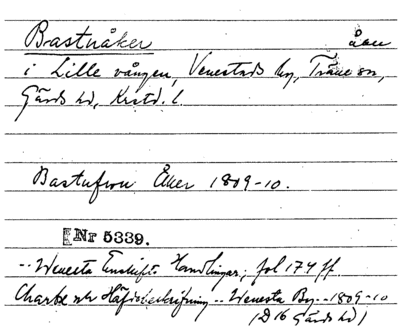 Bastuåker åker
i Lille vången, Venestads by, Träne sn,
Gärds hd, Krstd. l.
Bastufrou Åker 1809-10.
Nr 5339.
-- Wenesta Enskifts Handlingar, fol 174 ff.
Charte och Häfdebeskrifning -- Wenesta By -- 1809-10
(D16 Gärds hd)